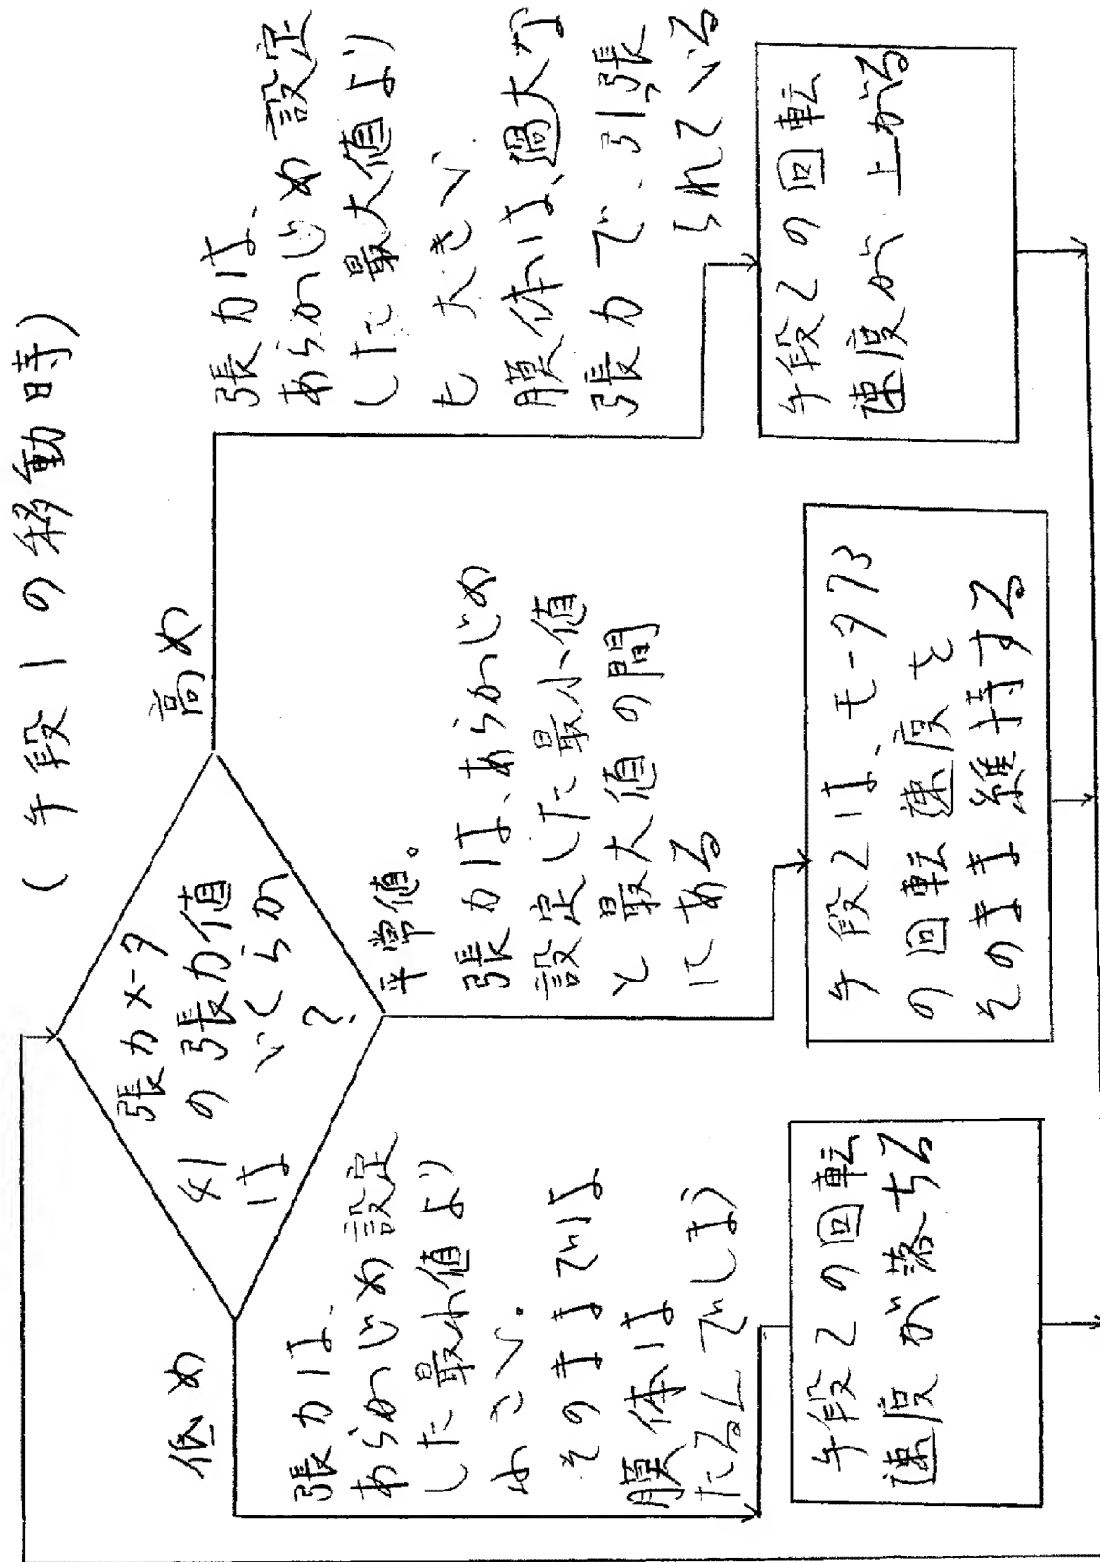 (手段1の移動時)
張力メータ
41の張力値
はいくらか
?
低め
張力は、
あらかじめ設定
した最小値より
小さい。
そのままでは
膜体は
たるんでしまう
手段2の回転
速度が落ちる
平常値。
張力は、あらかじめ
設定した最小値
と最大値の間
にある
手段2は、モータ73
の回転速度を
そのまま維持する
高め
張力は、
あらかじめ設定
した最大値より
も大きい、
膜体は、過大な
張力で、引張
られている
手段2の回転
速度が上がる